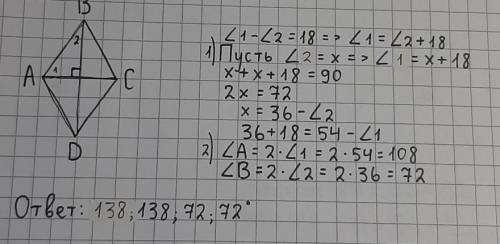 B
2
A 1 C
D
∠1-∠2=18=>∠1=∠2+18
1) Пусть ∠2=x=>∠1=x+18
x+x+18=90
2x=72
x=36-∠2
36+18=54-∠1
2) ∠A=2·∠1=2·54=108
∠B=2·∠2=2·36=72
Ответ: 138; 138; 72; 72°